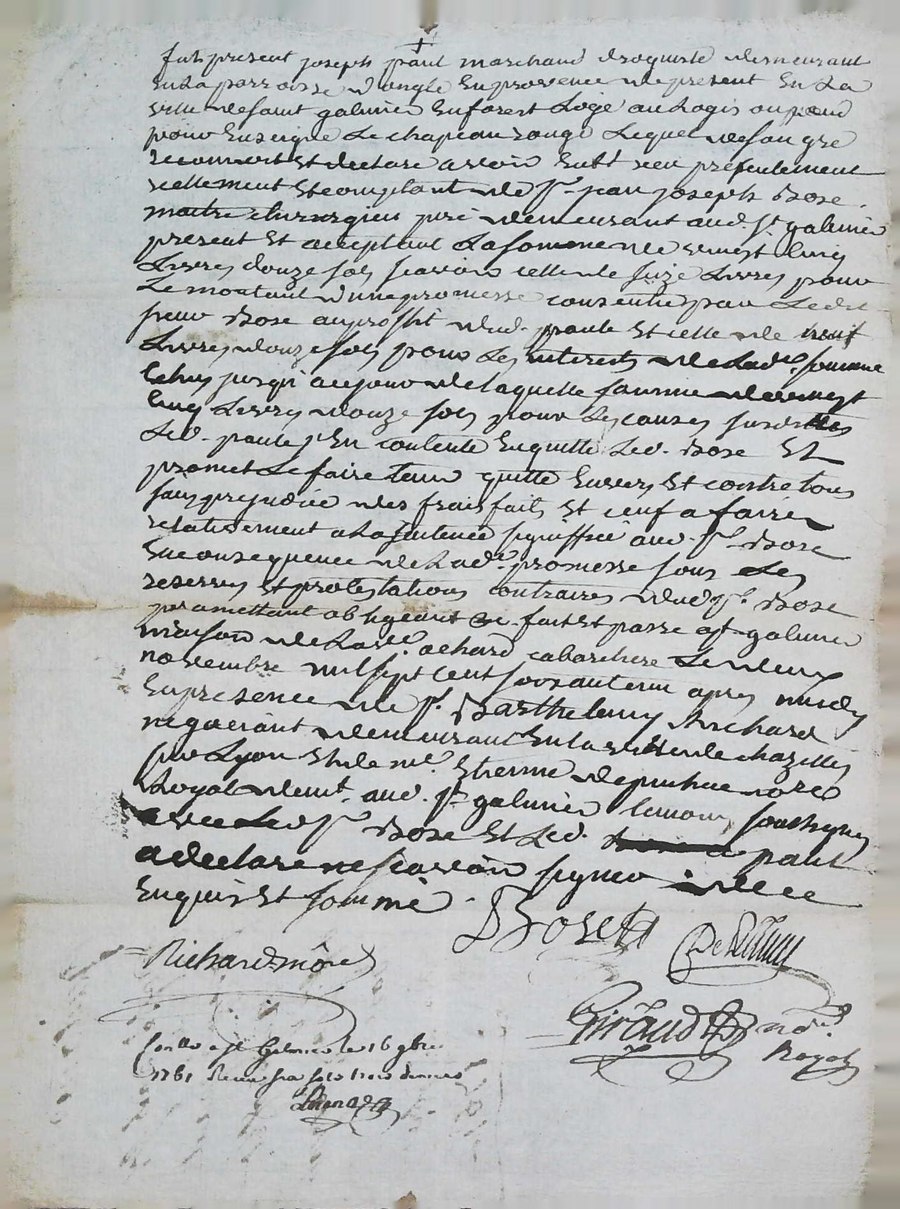 fut present joseph paul marchand droguiste demeurant
En la parroisse d'angle En provence de present En La
ville de saint galmier En forest Logé au Logis ou pend
pour Enseigne Le chapeau rouge Lequel de son gre
reconnoit Et declare avoir Eu Et receu presentement
reellement Et comptant de sr. jean joseph Bose
maitre chirurgien juré demeurant aud. st. galmier
present Et acceptant La somme de vingt cinq
Livres douze sols scavoir celle de seize Livres pour
Le montant d'une promesse consentie par Ledit
sieur Bose au proffit dud. paule Et celle de neuf
Livres douze sols pour Les interets de Lad. somme
jusqu'au jour de laquelle somme de vingt
cinq Livres douze sols pour Les causes susdittes
Led. paule s'En contente En quitte Led. Bose Et
promet Le faire tenir quitte Envers Et contre tous
sans prejudice des frais faits Et ceux a faire
relativement a La sentence signiffiée aud. sr. Bose
En consequence de Lad. promesse sous Les
reserves Et protestations contraires dud. sr. Bose
promettant obligeant &c. fait Et passé a st. galmier
maison de La ve. achard cabarthere Le deux
novembre mil sept cent soixante un apres midy
En presence de sr. Barthelemy Richard
negociant demeurant En la ville de chazelles
sur Lyon Et de me. Etienne
Royal demt. aud. st. galmier temoins soussignes
avec Led. sr. Bose Et Led. paul
a declaré ne scavoir signer de ce
Enquis Et sommé.
Bose
Richard
Giraud nore.
Royal
Conllé a st Galmier le 16 9bre
1761 Receu